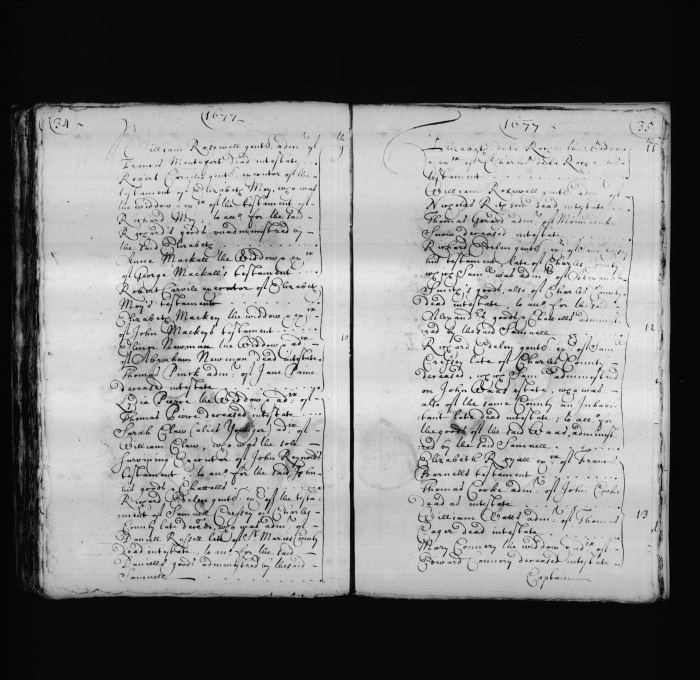 34
1677
William Rosewell gentl. admr. of
Francis Mentefort dead intestate
Robert Carvile gentl. executor of the
testament of Elizabeth Moy, who was
the widdow & exx of the testament of
Richard Moy, to acct. for the said
Richard's goods unadministred by
the said Elizabeth
Anne Mackall the Widdow & exx
of George Mackall's testament
Robert Carvile executor of Elizabeth
Moy's testament
Elizabeth Mackey the widdow & exx
of John Mackey's testament
Newman the Widdow & adx
of Abraham Newman dead intestate
Thomas admr. of Jane Paine
deceased intestate
the Widdow & adx. of
Thomas dead intestate
Sarah Claw (alias Younger) adx of
William Claw, who was the sole
surviving Executor of John Reynold's
testament, to acct. for the said John
his goods & chattells
Richard Edelen gentl. exr of the testa-
ment of Samuell Cressey of Charles
County late deced, who was admr. of
Daniell Russell late of St. Maries County
dead intestate, to acct. for the said
Daniell's goods administred by the said
Samuell
9
10
1677
35
Elizabeth dela Roche the Widdow
& exx of Charles dela Roche his
testament
William Rosewell gentl. admr. of
dead intestate
Thomas Gerard admr. of
deceased intestate
Richard Edelen gentl. exr of
his testament late of Charles County
who was admr. of
goods, also of Charles County
dead intestate, to acct. for the said
goods & Chattells administ-
red by the said Samuell
Richard Edelen gentl. exr of Samll
Cressey late of Charles County
deceased, who administred
on John Ward's estate, who was
also of the same County an Inhabi-
tant late dead intestate, to acct. for
the goods of the said Ward, administ-
red by the said Samuell
Elizabeth Royall exx of Francis
Barnell's testament
Thomas Cooke admr. of John Cooke
dead intestate
William Watts admr. of Thomas
dead intestate
Mary Connery the widdow & adx of
Edward Connery deceased intestate
Captain
11
12
13